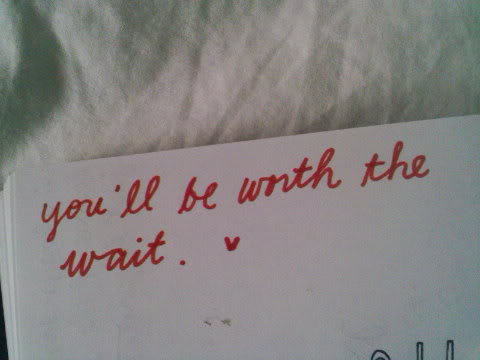 you'll be worth the
wait. ♥